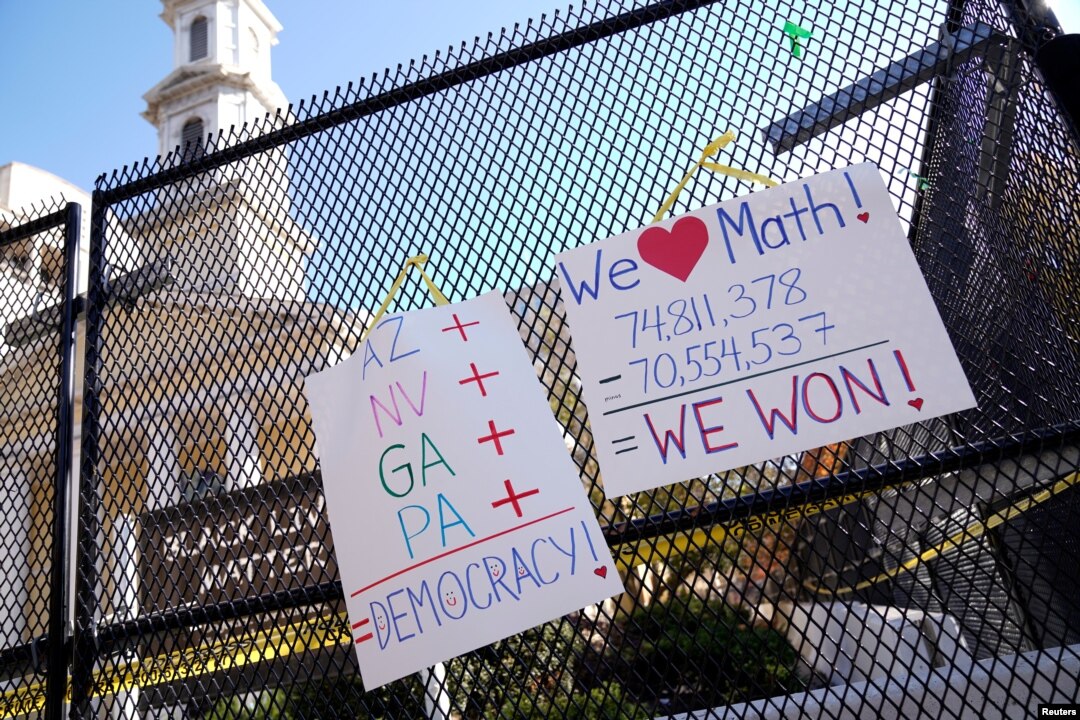 AZ +
NV +
GA +
PA +
= DEMOCRACY!
We ❤ Math!
74,811,378
- 70,554,537
minus
= WE WON!
Reuters